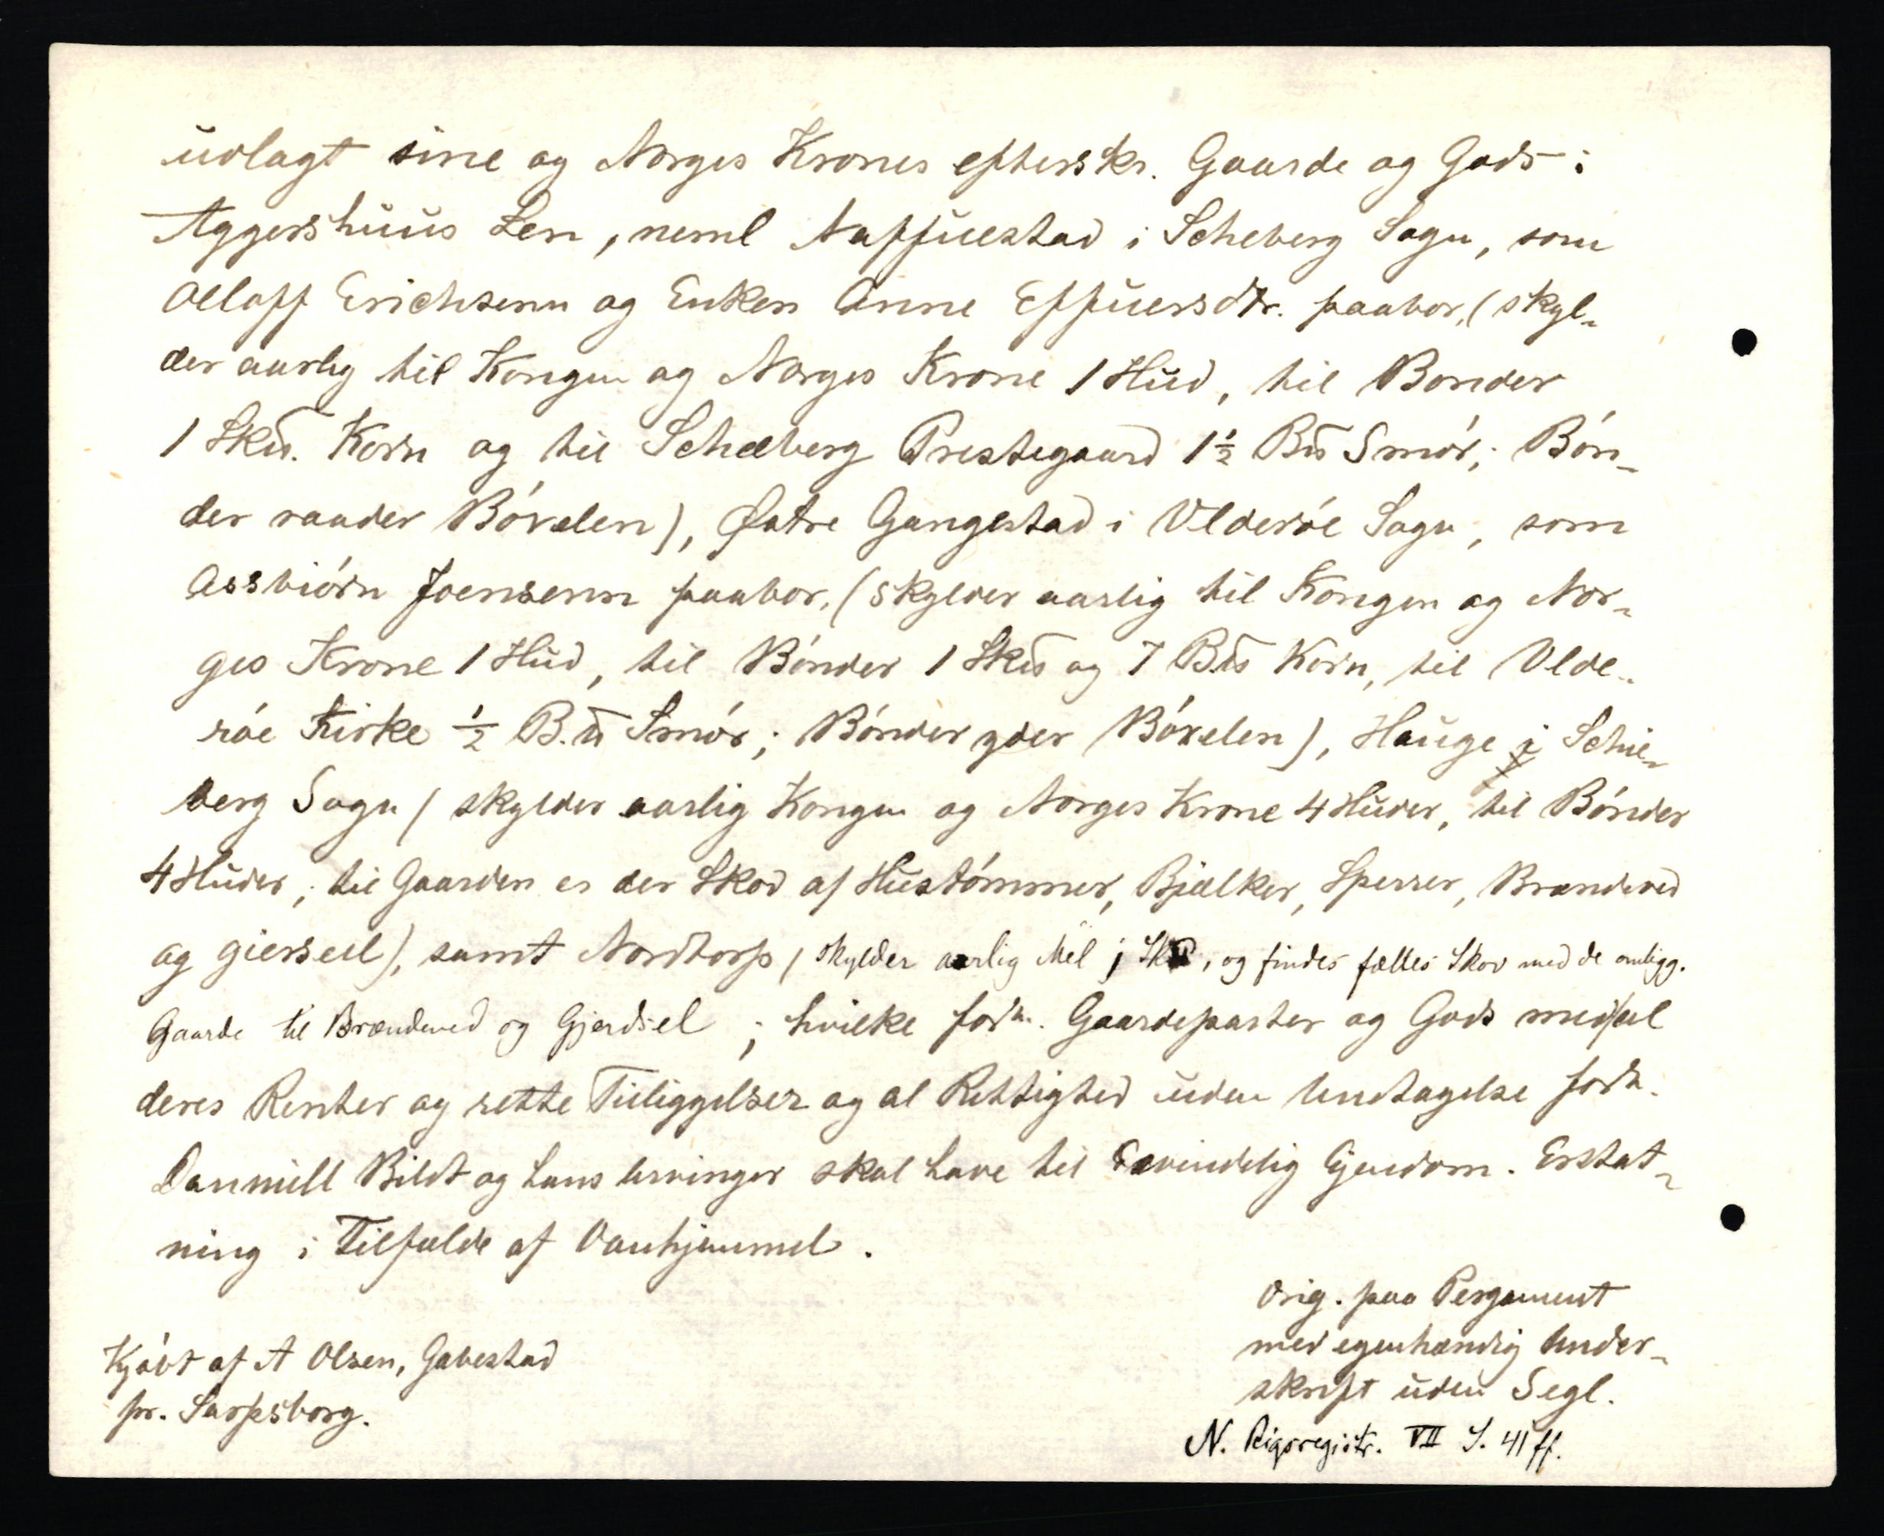 udlagt sine og Norges Krones efterskr. Gaarde og Gods i
Aggershuus Len, neml Naffuestad i Scheberg Sogn, som
Olloff Erichsenn og Enken Anne Effuersdtr. paabor, (skyl-
der aarlig til Kongen og Norges Krone 1 Hud, til Bonder
1 Sk℔. Korn og til Scheberg Prestegaard 1½ B℔ Smór; Bón-
der raader Bóxelen), Østre Gangestad i Vlderóe Sogn, som
Assbiórn Joensenn paabor, (skylder aarlig til Kongen og Nor-
ges Krone 1 Hud, til Bónder 1 Sk℔ og 7 B℔ Korn, til Vlde-
róe Kirke ½ B.℔ Smór; Bónder yder Bóxelen), Hauge i Schie-
berg Sogn (skylder aarlig Kongen og Norges Krone 4 Huder, til Bónder
4 Huder; til Gaarden er der Skov af Hustómmer, Bjælker, Sperrer, Brændeved
og gierseel), samt Nordtorp (skylder aarlig Mel j Sk℔, og findes fælles Skov med de omligg.
Gaarde til Brændeved og Gjerdsel ; hvilke forn. Gaardeparter og Gods med al
deres Renter og rette Tilliggelser og al Rettighed uden Undtagelse forn.
Danniell Bildt og hans Arvinger skal have til Evindelig Ejendom. Erstat-
ning i Tilfælde af Vanhjemmel.
Orig. paa Pergament
med egenhændig Under-
skrift uden Segl.
N. Rigsregistr. VII S. 41 ff.
Kjóbt af A Olsen, Gabestad
pr. Sarpsborg.